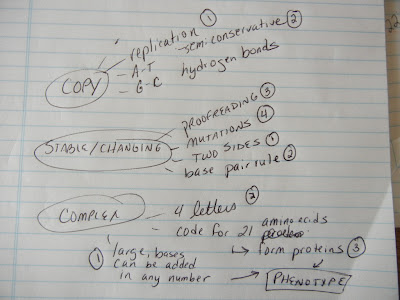 replication ①
semi-conservative ②
A-T
hydrogen bonds
G-C
COPY
PROOFREADING ③
MUTATIONS ④
STABLE/CHANGING
TWO SIDES ①
base pair rule ②
COMPLEX
4 letters ②
amino acids
code for 21
① large, bases
can be added
in any number
↳ form proteins ③
PHENOTYPE